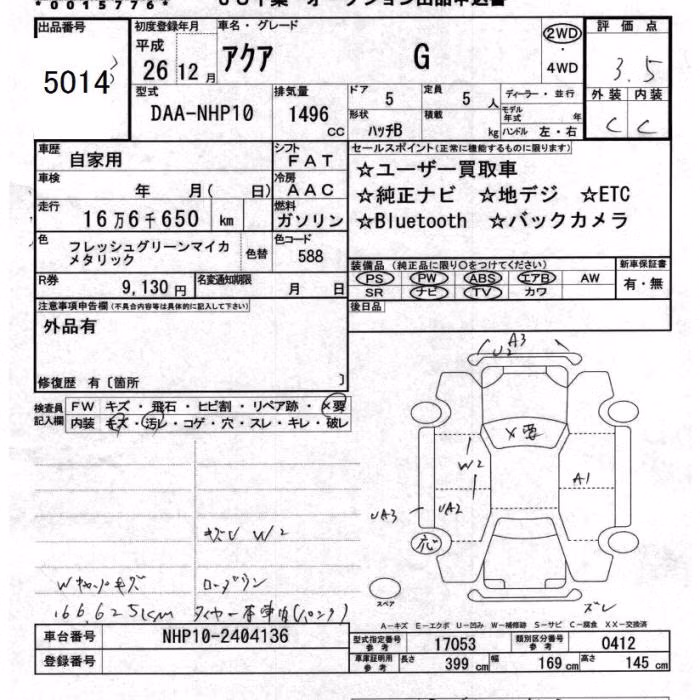 *0015776*
出品番号 5014
初度登録年月 車名・グレード 2WD ・ 4WD 評価点
平成 26 12月 アクア G 3.5
型式 排気量 ドア 5 定員 5人 ディーラー・並行 外装 内装
DAA-NHP10 1496cc 形状 ハッチB 積載 kg モデル年式 年 ハンドル 左・右 C C
車歴 自家用 シフト FAT セールスポイント(正常に機能するものに限ります)
車検 年 月( 日) 冷房 AAC ☆ユーザー買取車
走行 16万6千650 km 燃料 ガソリン ☆純正ナビ ☆地デジ ☆ETC
☆Bluetooth ☆バックカメラ
色 フレッシュグリーンマイカメタリック 色替 色コード 588
装備品(純正品に限り○をつけてください) 新車保証書
PS PW ABS エアB AW 有・無
SR ナビ TV カワ
R券 9,130円 名変通知期限 月 日
後日品
注意事項申告欄(不具合内容等は具体的に記入して下さい)
外品有
修復歴 有〔箇所 〕
検査員記入欄 FW キズ・飛石・ヒビ割・リペア跡・×要
内装 キズ・汚レ・コゲ・穴・スレ・キレ・破レ
A3
U2
×要
W2
A1
UA3
UA2
応
スペア
ズレ
キズレ W2
Wカードキズ ローダウン
166,625km タイヤー本車内(パンク)
A-キズ E-エクボ U-凹み W-補修跡 S-サビ C-腐食 XX-交換済
車台番号 NHP10-2404136
登録番号
型式指定番号 参考 17053 類別区分番号 参考 0412
車庫証明用 参考 長さ 399cm 幅 169cm 高さ 145cm